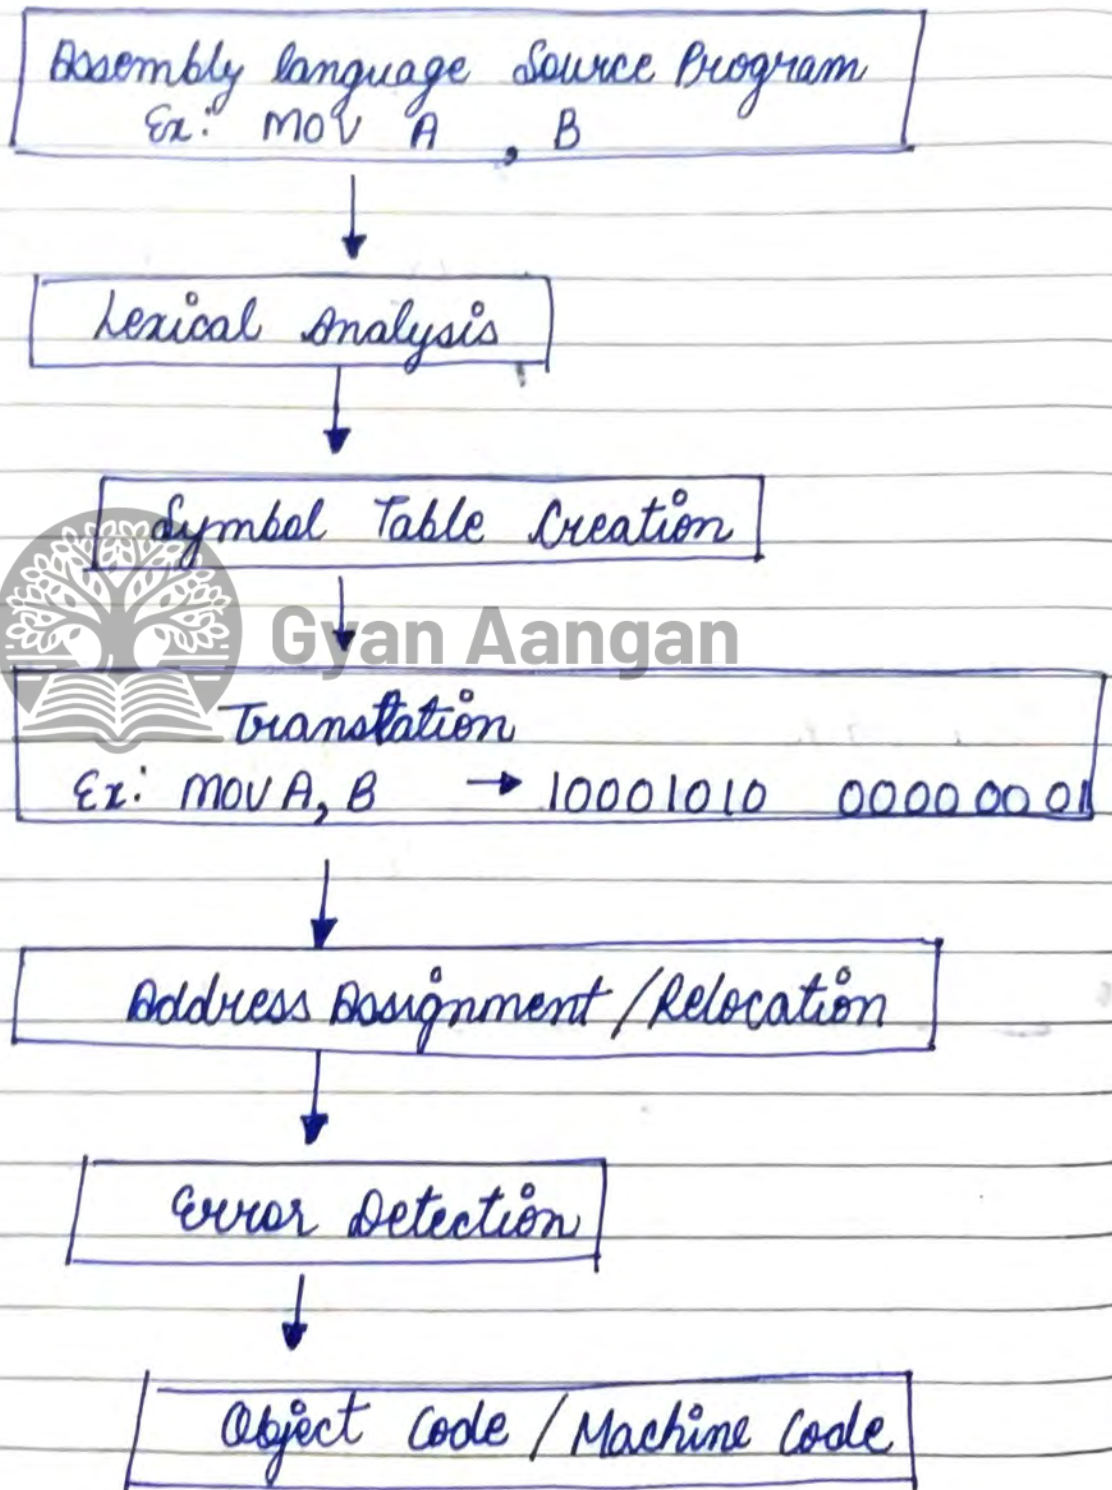 Assembly language Source Program
Ex: MOV A , B
Lexical Analysis
Symbol Table Creation
Gyan Aangan
Translation
Ex: MOV A, B → 10001010 00000001
Address Assignment / Relocation
Error Detection
Object Code / Machine Code